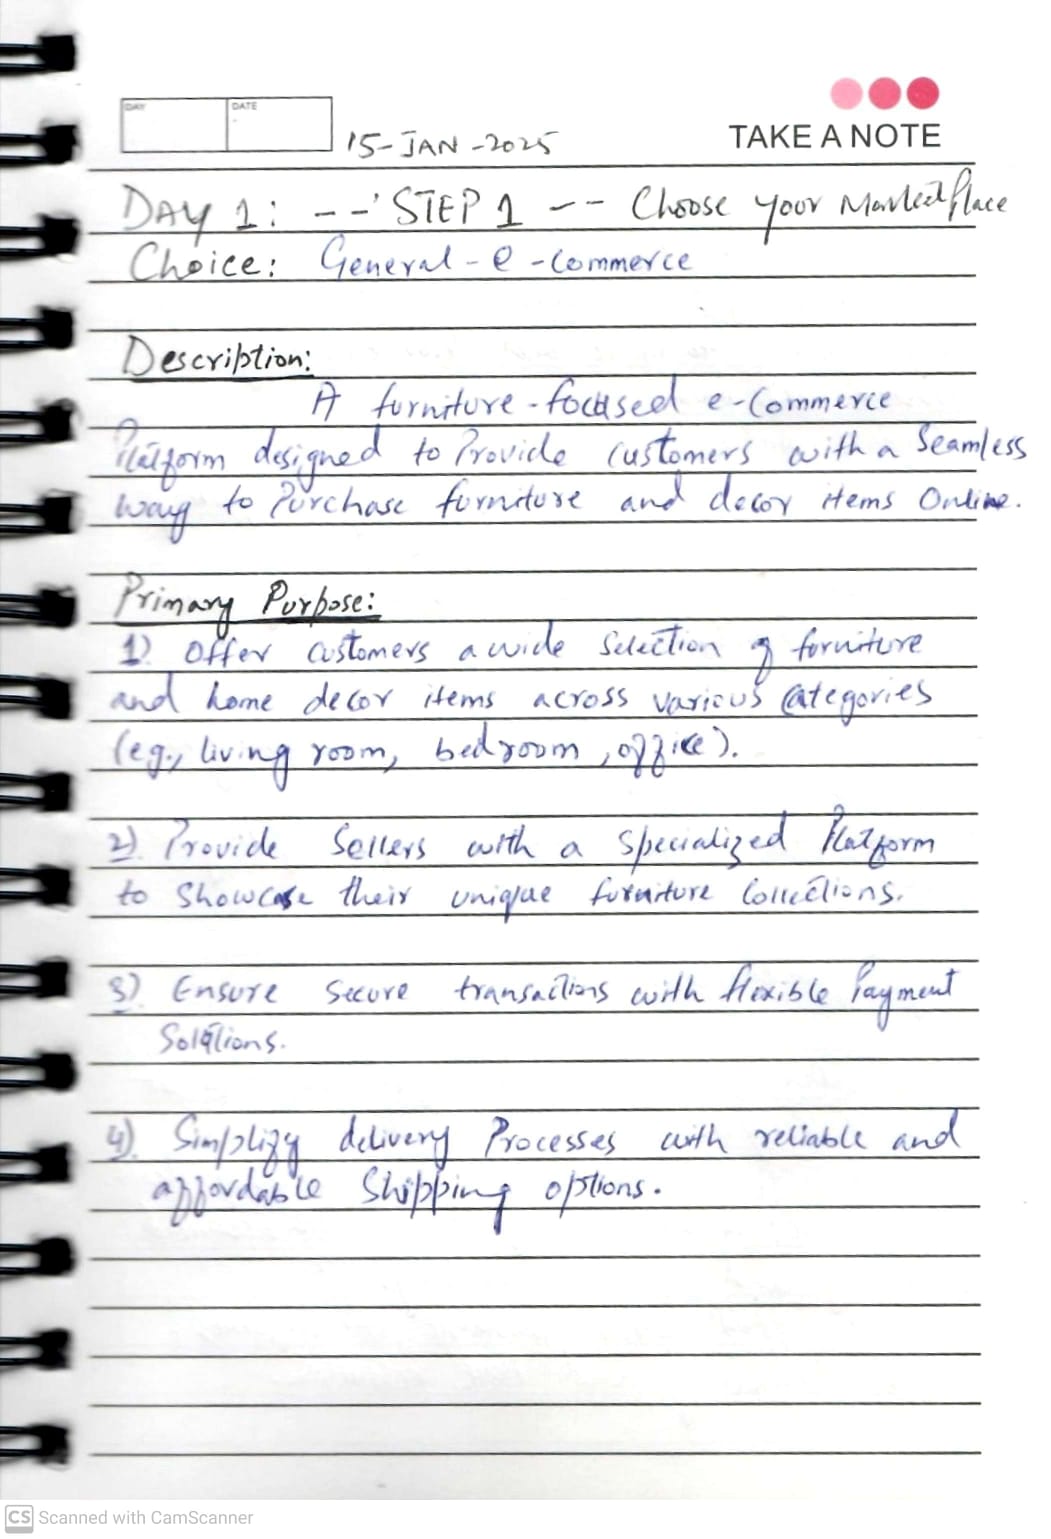 DAY DATE
15-JAN-2025
TAKE A NOTE
DAY 1: --'STEP 1 -- Choose your MarketPlace
Choice: General-e-commerce
Description:
A furniture-focused e-commerce
Platform designed to Provide customers with a Seamless
way to Purchase furniture and decor items Online.
Primary Purpose:
1) Offer customers a wide selection of furniture
and home decor items across various Categories
(eg., living room, bedroom, office).
2) Provide Sellers with a specialized Platform
to Showcase their unique furniture Collections.
3) Ensure Secure transactions with flexible Payment
Solutions.
4) Simplify delivery Processes with reliable and
affordable Shipping options.
CS Scanned with CamScanner